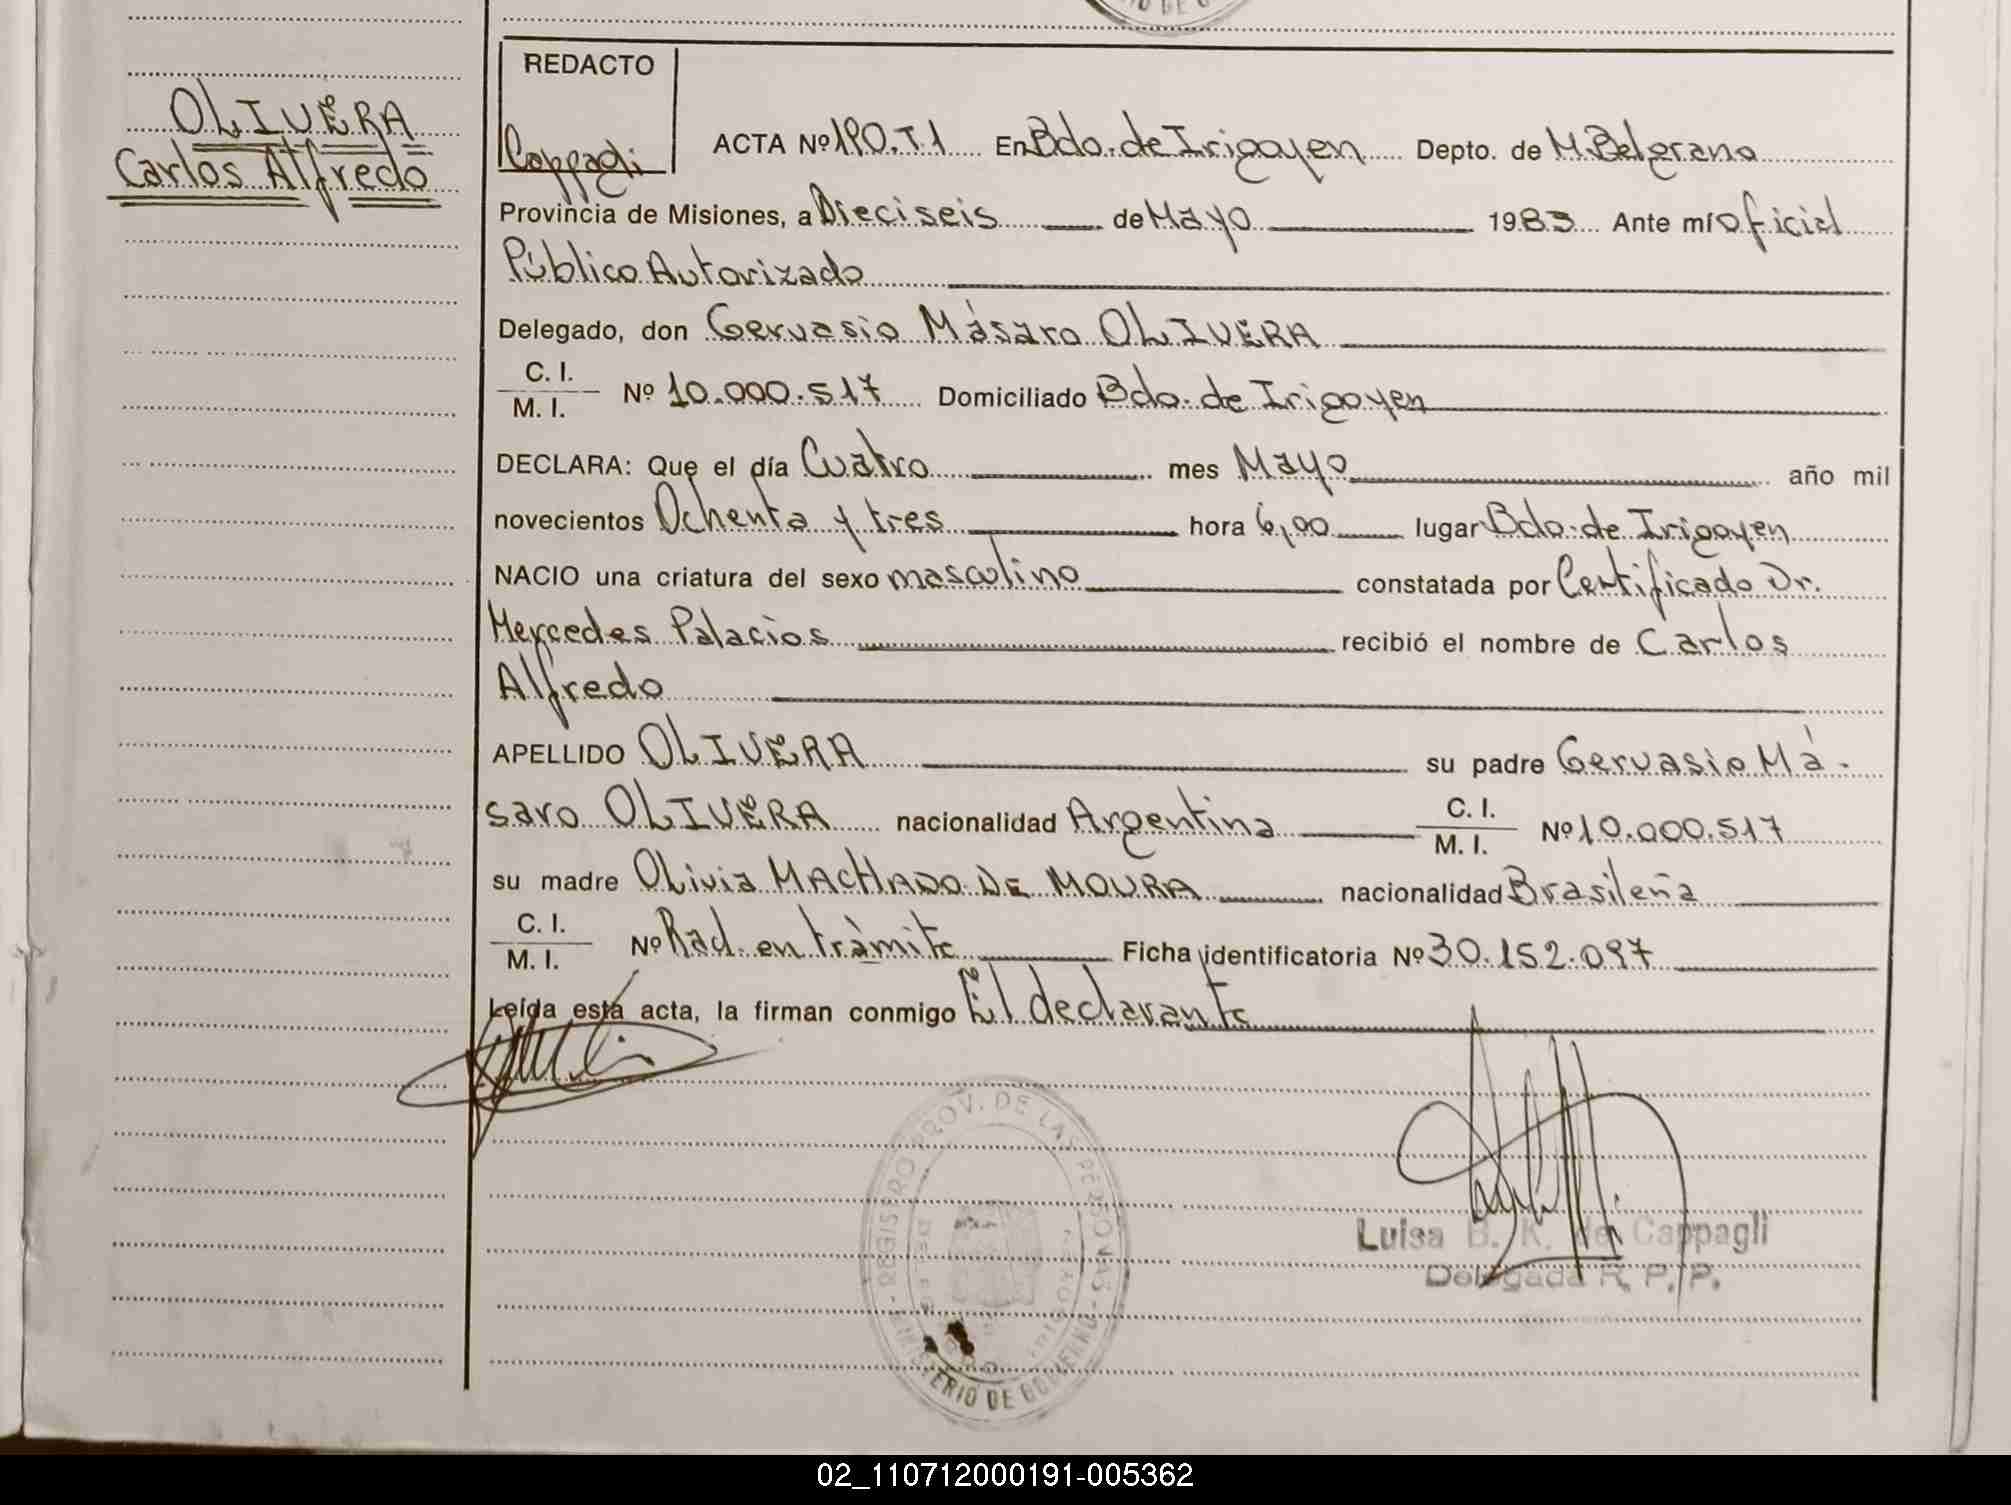 IO DE G
OLIVERA
Carlos Alfredo
REDACTO
Cappagli
ACTA Nº 190.T1 En Bdo. de Irigoyen Depto. de M. Belgrano
Provincia de Misiones, a Dieciseis de Mayo 1983 Ante mí oficial
Público Autorizado
Delegado, don Gervasio Másaro OLIVERA
C. I.
M. I. Nº 10.000.517 Domiciliado Bdo. de Irigoyen
DECLARA: Que el día Cuatro mes Mayo año mil
novecientos Ochenta y tres hora 6,00 lugar Bdo. de Irigoyen
NACIO una criatura del sexo masculino constatada por Certificado Dr.
Mercedes Palacios recibió el nombre de Carlos
Alfredo
APELLIDO OLIVERA su padre Gervasio Má-
saro OLIVERA nacionalidad Argentina C. I. M. I. Nº 10.000.517
su madre Olivia MACHADO DE MOURA nacionalidad Brasileña
C. I.
M. I. Nº Rad. en tràmite Ficha identificatoria Nº 30.152.097
Leída esta acta, la firman conmigo El declarante
REGISTRO PROV. DE LAS PERSONAS
MINISTERIO DE GOBIERNO
Luisa B. K. de Cappagli
Delegada R. P. P.
02_110712000191-005362